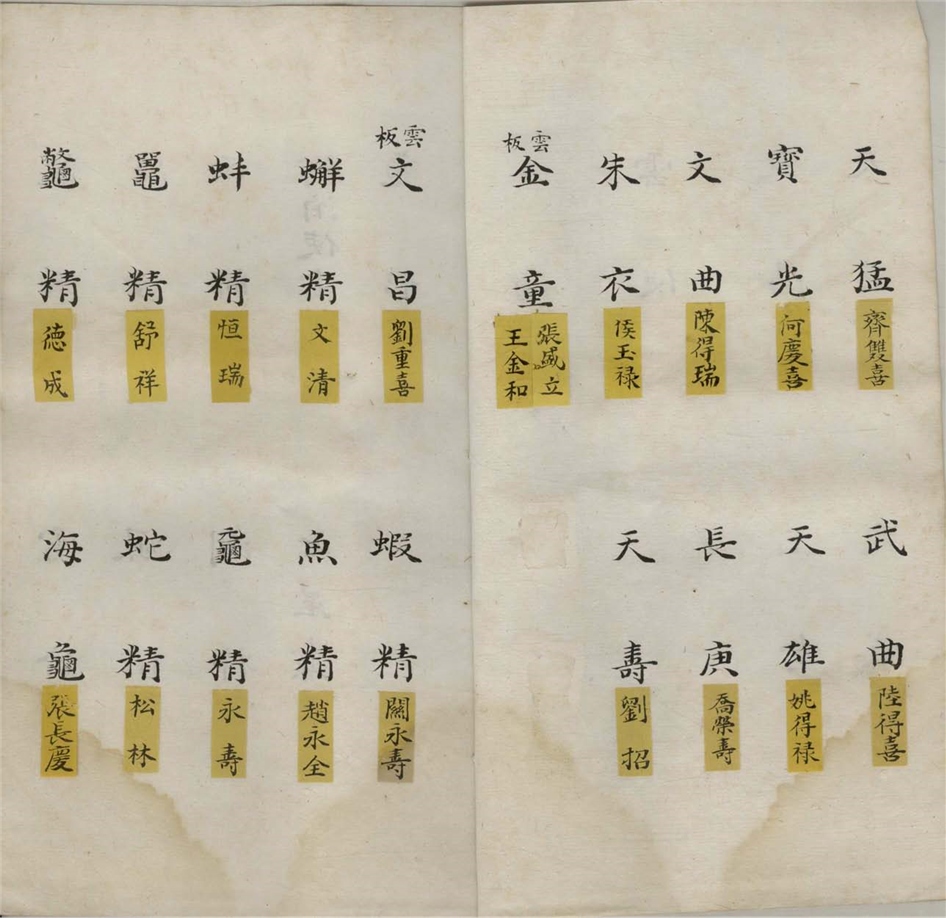 天猛 齊雙喜
武曲 陸得喜
寶光 何慶喜
天雄 姚得禄
文曲 陳得瑞
長庚 喬榮壽
朱衣 侯玉禄
天壽 劉招
雲板
金童 張盛立 王金和
雲板
文昌 劉重喜
蝦精 關永壽
蠏精 文清
魚精 趙永全
蚌精 恒瑞
黿精 永壽
鼉精 舒祥
蛇精 松林
鼈精 德成
海龜 張長慶